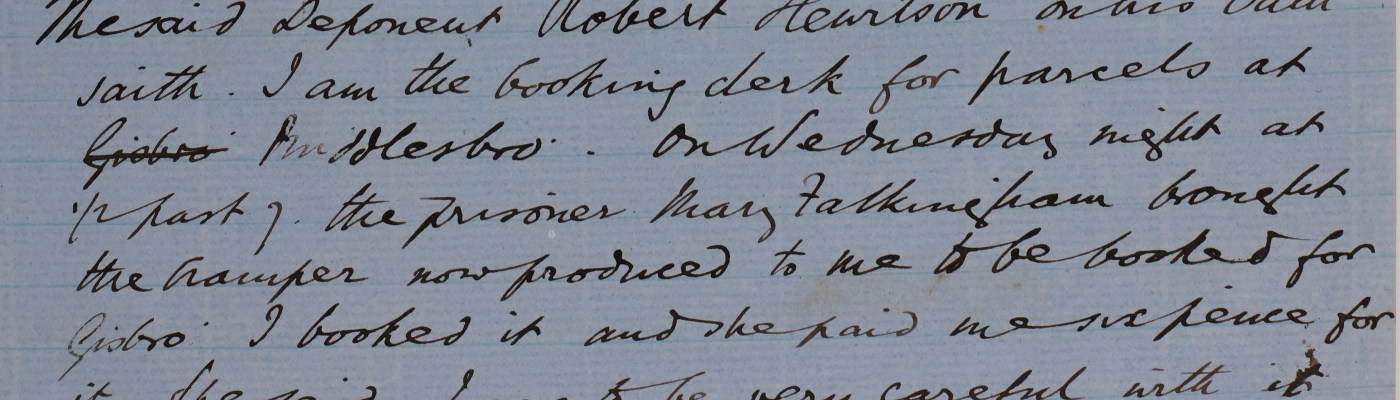 The said Deponent Robert Hewitson on his Oath
saith. I am the booking clerk for parcels at
Gisbro Middlesbro. On Wednesday night at
1/2 past 7. the prisoner Mary Falkingham brought
the hamper now produced to me to be booked for
Gisbro I booked it and she paid me sixpence for
it. She said I to be very careful with it